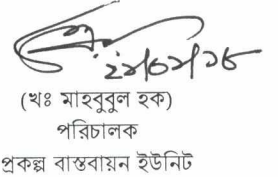 ২২/০২/১৮
(খঃ মাহবুবুল হক)
পরিচালক
প্রকল্প বাস্তবায়ন ইউনিট